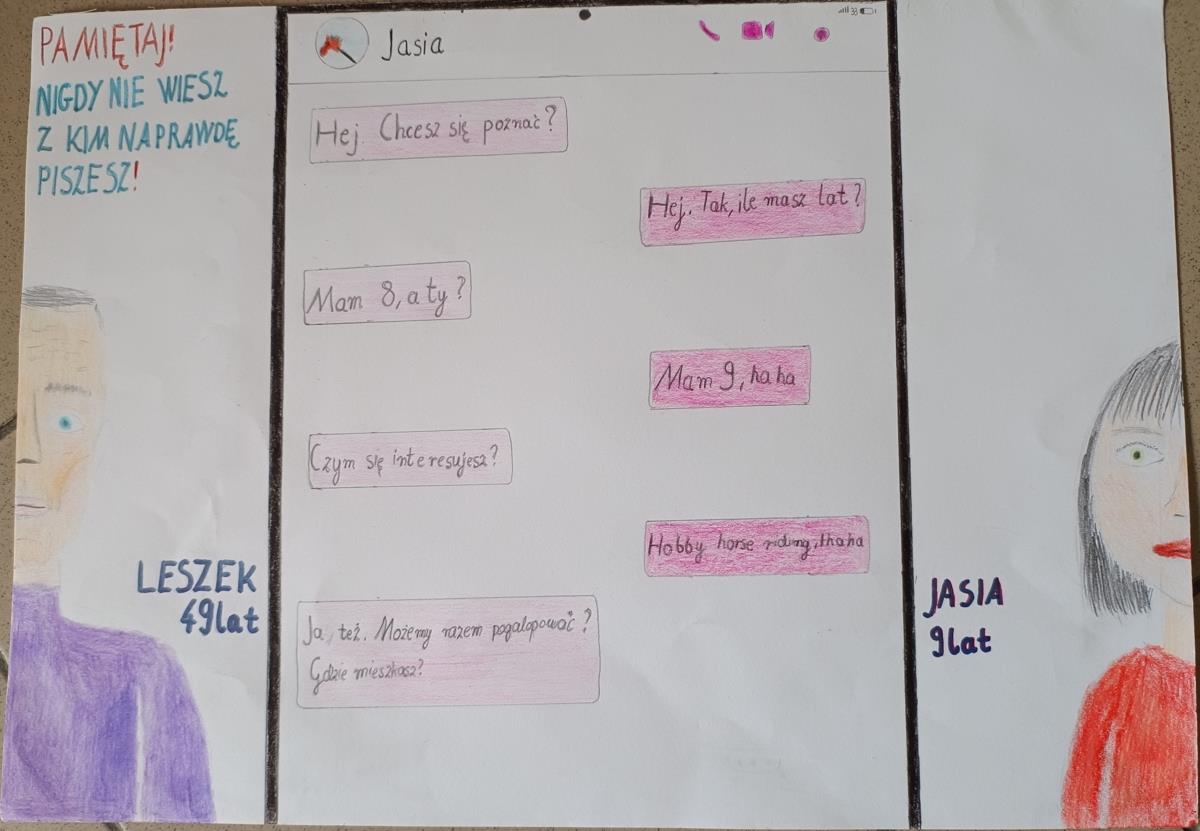 PAMIĘTAJ!
NIGDY NIE WIESZ
Z KIM NAPRAWDĘ
PISZESZ!
Jasia
33
Hej. Chcesz się poznać?
Hej. Tak, ile masz lat?
Mam 8, a ty?
Mam 9, haha
Czym się interesujesz?
Hobby horse riding, hhaha
Ja, też. Możemy razem pogalopować?
Gdzie mieszkasz?
LESZEK
49lat
JASIA
9lat